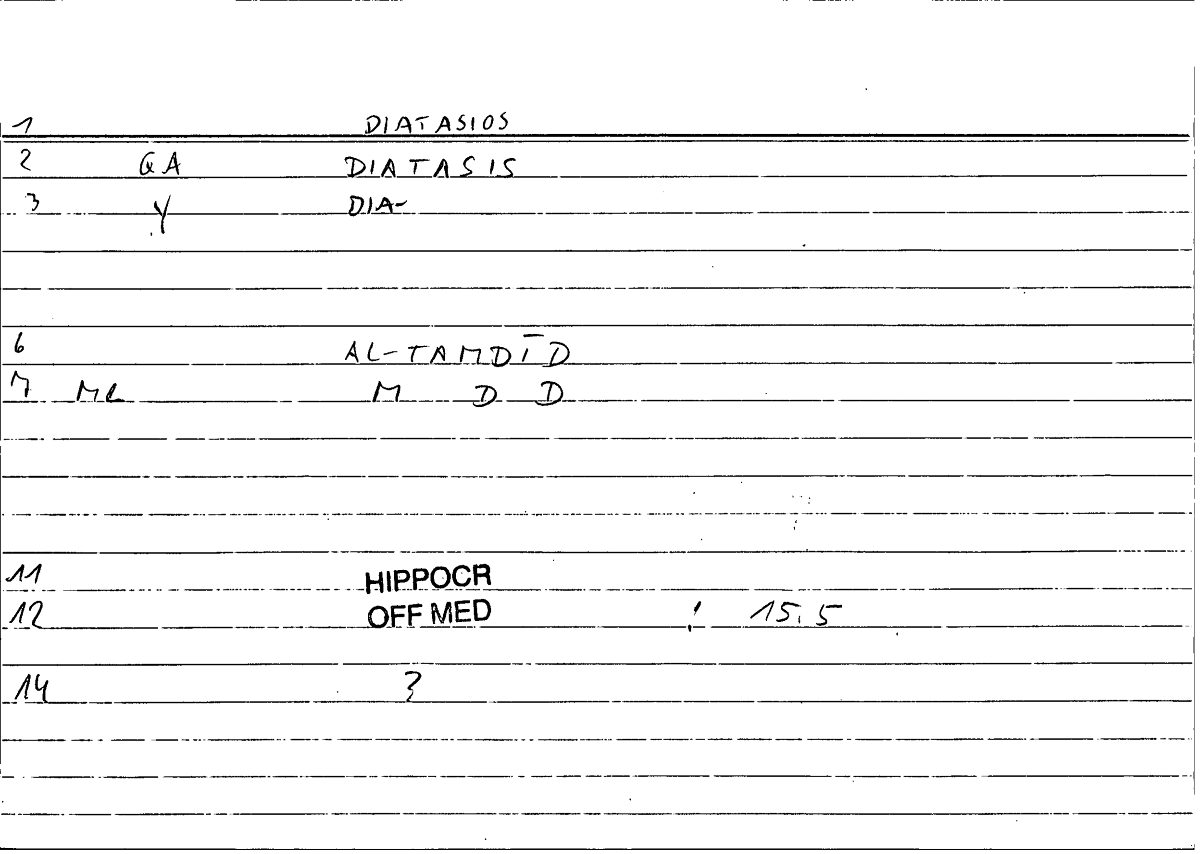 1 DIATASIOS
2 GA DIATASIS
3 Y DIA-
6 AL-TAMDĪD
7 ML M D D
11 HIPPOCR
12 OFF MED ! 15.5
14 ?